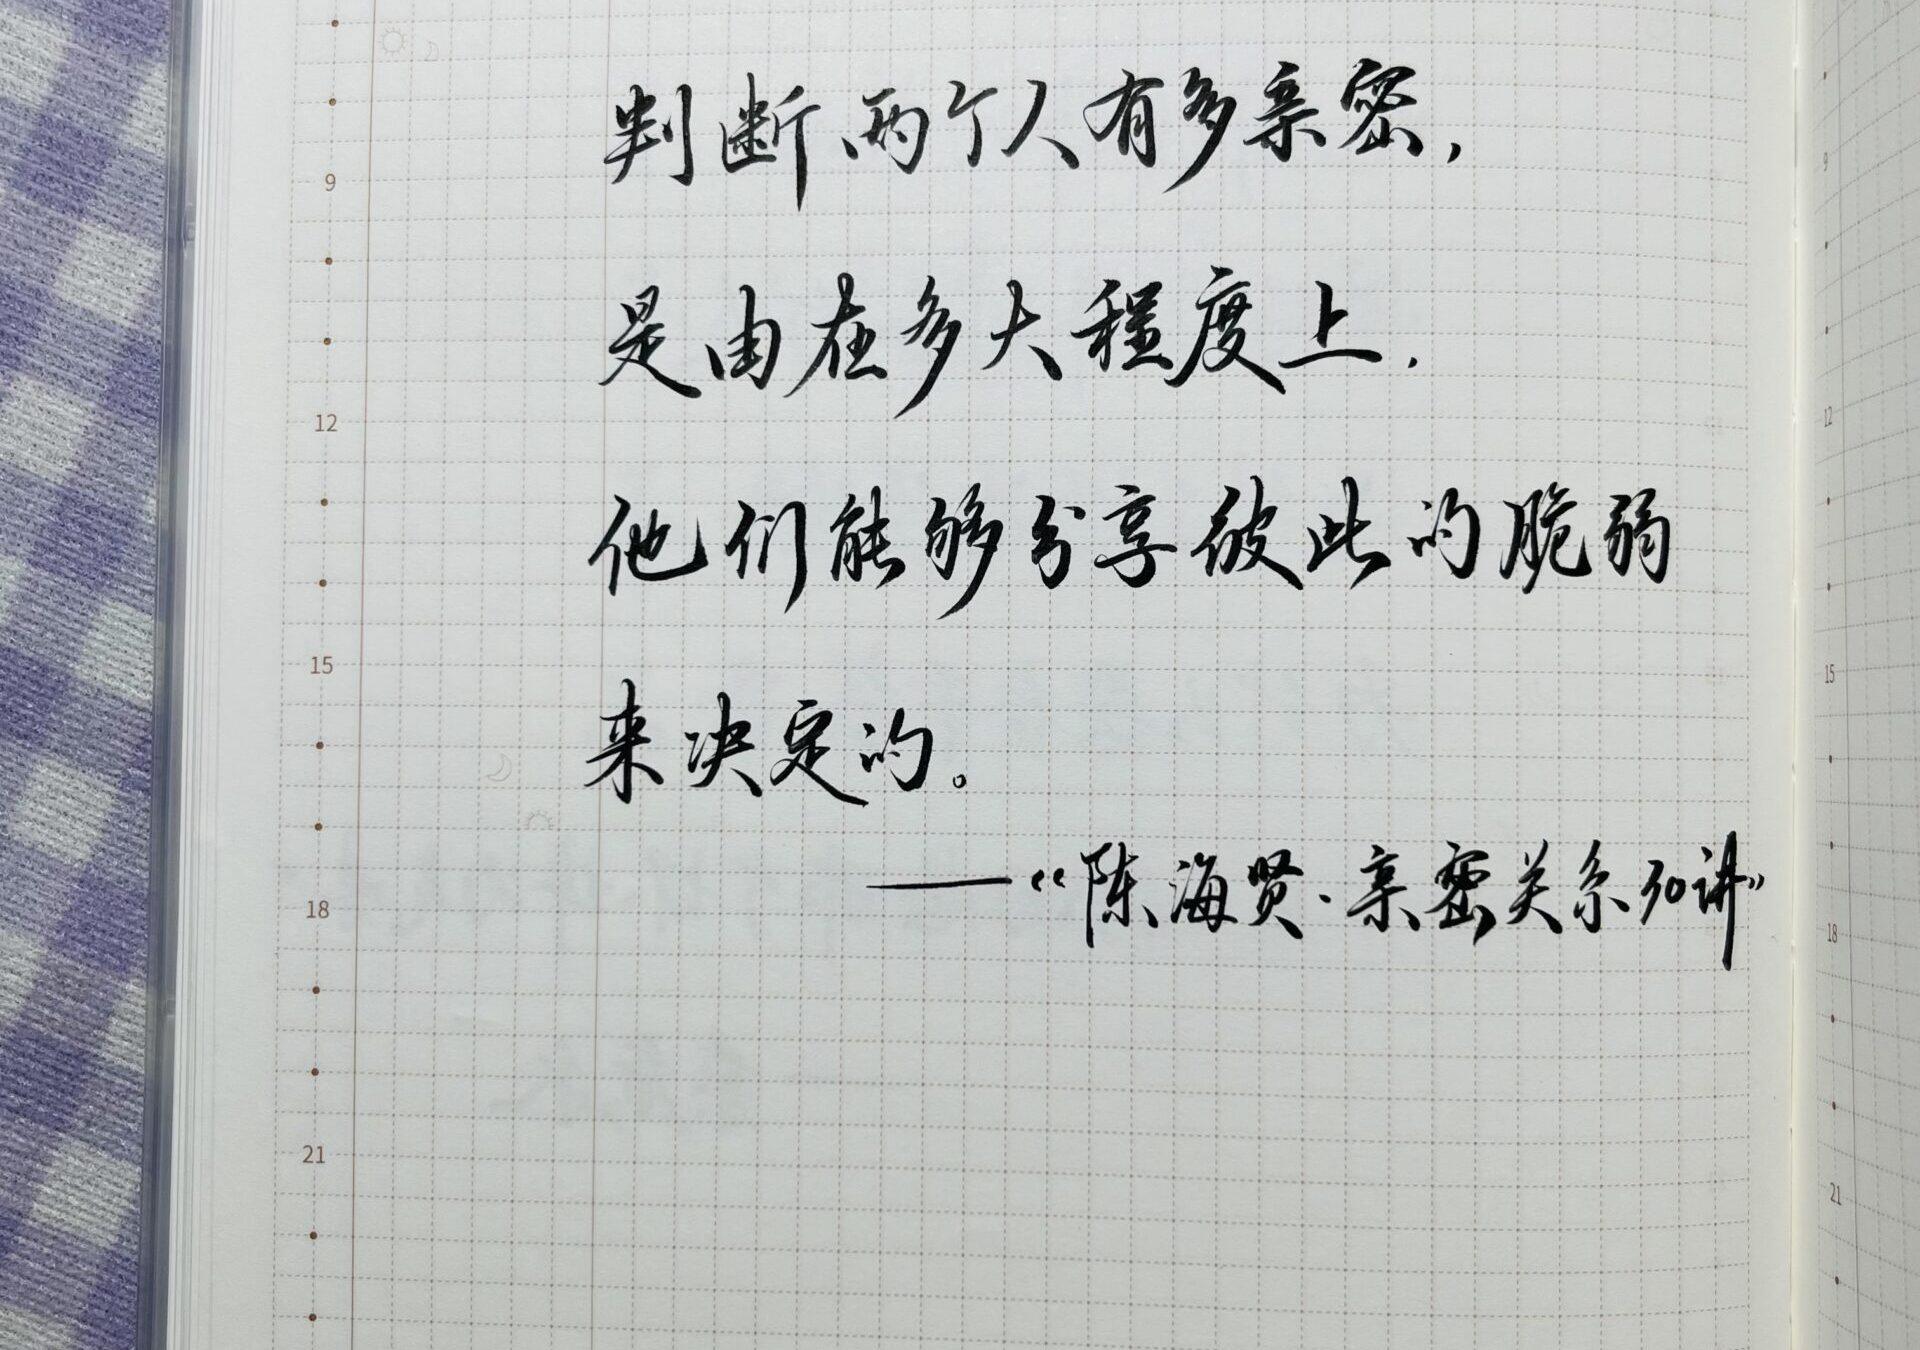 判断两个人有多亲密,
是由在多大程度上,
他们能够分享彼此的脆弱
来决定的。
——“陈海贤·亲密关系30讲”
9
12
15
18
21
9
12
15
18
21